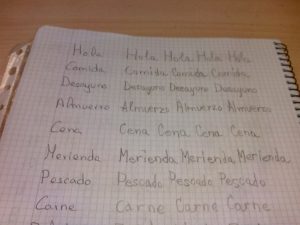 Hola Hola Hola Hola Hola
Comida Comida Comida Comida
Desayuno Desayuno Desayuno Desayuno
Almuerzo Almuerzo Almuerzo Almuerzo
Cena Cena Cena Cena Cena
Merienda Merienda Merienda Merienda
Pescado Pescado Pescado Pescado
Carne Carne Carne Carne